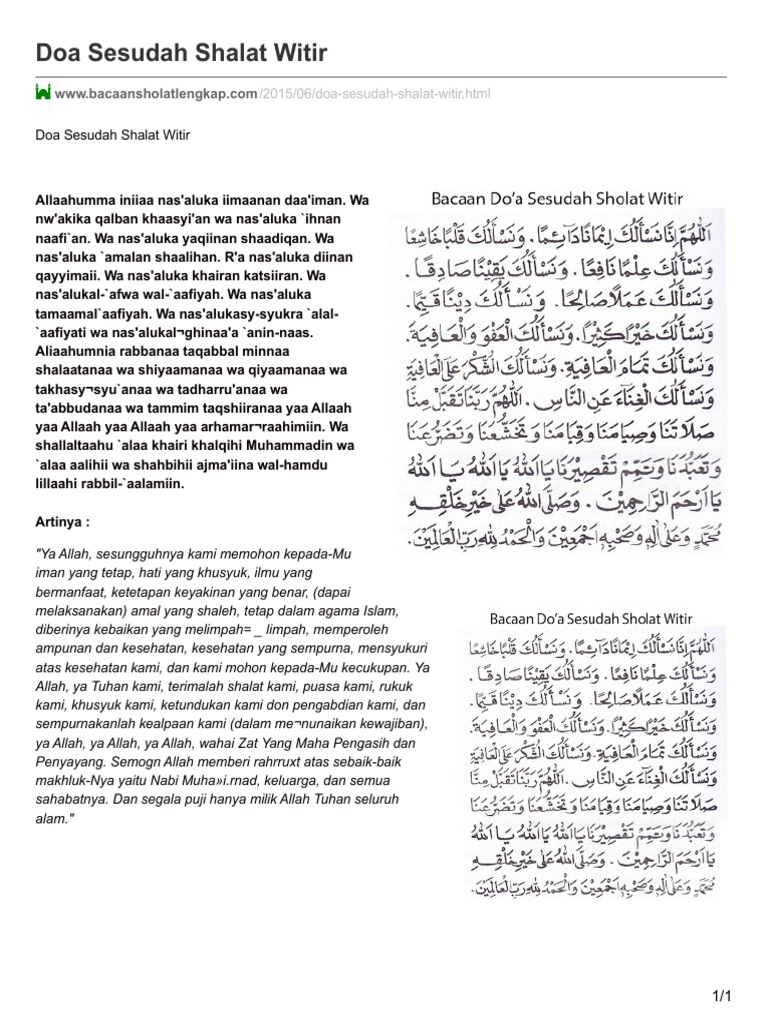 Doa Sesudah Shalat Witir
www.bacaansholatlengkap.com/2015/06/doa-sesudah-shalat-witir.html
Doa Sesudah Shalat Witir
Allaahumma iniiaa nas'aluka iimaanan daa'iman. Wa
nw'akika qalban khaasyi'an wa nas'aluka `ihnan
naafi`an. Wa nas'aluka yaqiinan shaadiqan. Wa
nas'aluka `amalan shaalihan. R'a nas'aluka diinan
qayyimaii. Wa nas'aluka khairan katsiiran. Wa
nas'alukal-`afwa wal-`aafiyah. Wa nas'aluka
tamaamal`aafiyah. Wa nas'alukasy-syukra `alal-
`aafiyati wa nas'alukal¬ghinaa'a `anin-naas.
Aliaahumnia rabbanaa taqabbal minnaa
shalaatanaa wa shiyaamanaa wa qiyaamanaa wa
takhasy¬syu`anaa wa tadharru'anaa wa
ta'abbudanaa wa tammim taqshiiranaa yaa Allaah
yaa Allaah yaa Allaah yaa arhamar¬raahimiin. Wa
shallaltaahu `alaa khairi khalqihi Muhammadin wa
`alaa aalihii wa shahbihii ajma'iina wal-hamdu
lillaahi rabbil-`aalamiin.
Artinya :
"Ya Allah, sesungguhnya kami memohon kepada-Mu
iman yang tetap, hati yang khusyuk, ilmu yang
bermanfaat, ketetapan keyakinan yang benar, (dapai
melaksanakan) amal yang shaleh, tetap dalam agama Islam,
diberinya kebaikan yang melimpah= _ limpah, memperoleh
ampunan dan kesehatan, kesehatan yang sempurna, mensyukuri
atas kesehatan kami, dan kami mohon kepada-Mu kecukupan. Ya
Allah, ya Tuhan kami, terimalah shalat kami, puasa kami, rukuk
kami, khusyuk kami, ketundukan kami don pengabdian kami, dan
sempurnakanlah kealpaan kami (dalam me¬nunaikan kewajiban),
ya Allah, ya Allah, ya Allah, wahai Zat Yang Maha Pengasih dan
Penyayang. Semogn Allah memberi rahrruxt atas sebaik-baik
makhluk-Nya yaitu Nabi Muha»i.rnad, keluarga, dan semua
sahabatnya. Dan segala puji hanya milik Allah Tuhan seluruh
alam."
Bacaan Do'a Sesudah Sholat Witir
اَللّٰهُمَّ اِنَّا نَسْأَلُكَ اِيْمَانًا دَائِمًا. وَنَسْأَلُكَ قَلْبًا خَاشِعًا
وَنَسْأَلُكَ عِلْمًا نَافِعًا. وَنَسْأَلُكَ يَقِيْنًا صَادِقًا.
وَنَسْأَلُكَ عَمَلًا صَالِحًا. وَنَسْأَلُكَ دِيْنًا قَيِّمًا.
وَنَسْأَلُكَ خَيْرًا كَثِيْرًا. وَنَسْأَلُكَ الْعَفْوَ وَالْعَافِيَةَ.
وَنَسْأَلُكَ تَمَامَ الْعَافِيَةِ. وَنَسْأَلُكَ الشُّكْرَ عَلَى الْعَافِيَةِ
وَنَسْأَلُكَ الْغِنَاءَ عَنِ النَّاسِ. اَللّٰهُمَّ رَبَّنَا تَقَبَّلْ مِنَّا
صَلَاتَنَا وَصِيَامَنَا وَقِيَامَنَا وَتَخَشُّعَنَا وَتَضَرُّعَنَا
وَتَعَبُّدَنَا وَتَمِّمْ تَقْصِيْرَنَا يَا اَللهُ يَا اَللهُ يَا اَللهُ
يَا اَرْحَمَ الرَّاحِمِيْنَ. وَصَلَّى اللهُ عَلَى خَيْرِ خَلْقِهِ
مُحَمَّدٍ وَعَلَى اٰلِهِ وَصَحْبِهِ اَجْمَعِيْنَ وَالْحَمْدُ لِلّٰهِ رَبِّ الْعَالَمِيْنَ.
Bacaan Do'a Sesudah Sholat Witir
اَللّٰهُمَّ اِنَّا نَسْأَلُكَ اِيْمَانًا دَائِمًا. وَنَسْأَلُكَ قَلْبًا خَاشِعًا
وَنَسْأَلُكَ عِلْمًا نَافِعًا. وَنَسْأَلُكَ يَقِيْنًا صَادِقًا.
وَنَسْأَلُكَ عَمَلًا صَالِحًا. وَنَسْأَلُكَ دِيْنًا قَيِّمًا.
وَنَسْأَلُكَ خَيْرًا كَثِيْرًا. وَنَسْأَلُكَ الْعَفْوَ وَالْعَافِيَةَ.
وَنَسْأَلُكَ تَمَامَ الْعَافِيَةِ. وَنَسْأَلُكَ الشُّكْرَ عَلَى الْعَافِيَةِ
وَنَسْأَلُكَ الْغِنَاءَ عَنِ النَّاسِ. اَللّٰهُمَّ رَبَّنَا تَقَبَّلْ مِنَّا
صَلَاتَنَا وَصِيَامَنَا وَقِيَامَنَا وَتَخَشُّعَنَا وَتَضَرُّعَنَا
وَتَعَبُّدَنَا وَتَمِّمْ تَقْصِيْرَنَا يَا اَللهُ يَا اَللهُ يَا اَللهُ
يَا اَرْحَمَ الرَّاحِمِيْنَ. وَصَلَّى اللهُ عَلَى خَيْرِ خَلْقِهِ
مُحَمَّدٍ وَعَلَى اٰلِهِ وَصَحْبِهِ اَجْمَعِيْنَ وَالْحَمْدُ لِلّٰهِ رَبِّ الْعَالَمِيْنَ.
1/1